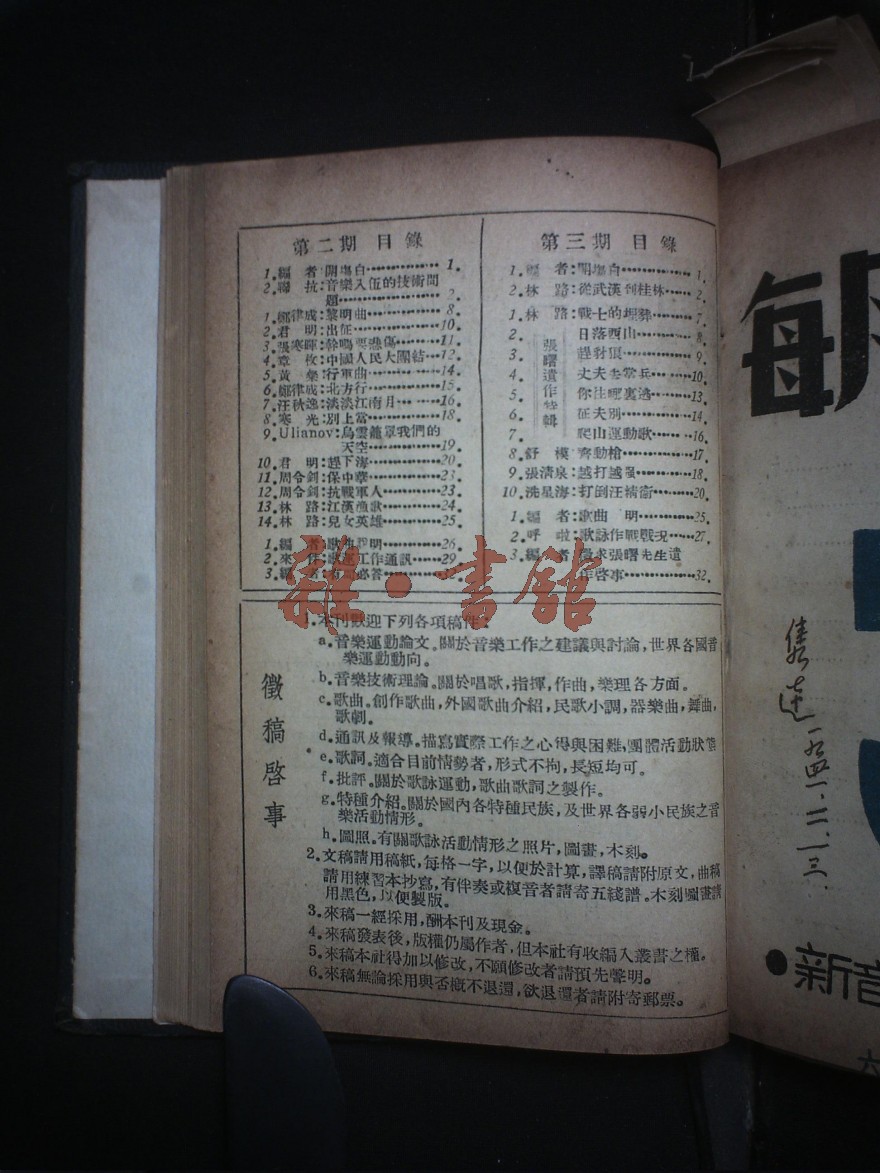 第二期 目錄
1. 編 者:開場白……………1.
2. 聯 抗:音樂入伍的技術問
題……………2.
1. 鄭律成:黎明曲……8.
2. 君 明:出征……10.
3. 張寒暉:幹嗎要悲傷……11.
4. 章 枚:中國人民大團結…12.
5. 黃 粲:行軍曲……14.
6. 鄭律成:北方行……15.
7. 汪秋逸:淡淡江南月…16.
8. 寒 光:別上當……18.
9. Ulianov:烏雲籠罩我們的
天空……19.
10. 君 明:趕下海……20.
11. 周令釗:保中華……23.
12. 周令釗:抗戰軍人……23.
13. 林 路:江漢漁歌……24.
14. 林 路:兒女英雄……25.
1. 編 者:歌曲說明……26
2. 來 件:歌運工作通訊……29
3. 編 者:有 必答……32.
第三期 目錄
1. 編 者:開場白……………1.
2. 林 路:從武漢到桂林……2.
1. 林 路:戰士的埋葬……7.
張曙遺作特輯
2. 日落西山……8.
3. 趕豺狼……9.
4. 丈夫去當兵……10.
5. 你往哪裏逃……13.
6. 征夫別……14.
7. 爬山運動歌……16.
8. 舒 模 齊動槍……17.
9. 張清泉:越打越強……18.
10. 洗星海:打倒汪精衛……20.
1. 編 者:歌曲 明……25.
2. 呼 啦:歌詠作戰戰況……27.
3. 編 者:徵求張曙先生遺
作啓事……32.
徵稿啓事
1. 本刊歡迎下列各項稿件:
a. 音樂運動論文。關於音樂工作之建議與討論,世界各國音
樂運動動向。
b. 音樂技術理論。關於唱歌,指揮,作曲,樂理各方面。
c. 歌曲。創作歌曲,外國歌曲介紹,民歌小調,器樂曲,舞曲,
歌劇。
d. 通訊及報導。描寫實際工作之心得與困難,團體活動狀態
e. 歌詞。適合目前情勢者,形式不拘,長短均可。
f. 批評。關於歌詠運動,歌曲歌詞之製作。
g. 特種介紹。關於國內各特種民族,及世界各弱小民族之音
樂活動情形。
h. 圖照。有關歌詠活動情形之照片,圖畫,木刻。
2. 文稿請用稿紙,每格一字,以便於計算,譯稿請附原文,曲稿
請用練習本抄寫,有伴奏或複音者請寄五綫譜。木刻圖畫請
用黑色,以便製版。
3. 來稿一經採用,酬本刊及現金。
4. 來稿發表後,版權仍屬作者,但本社有收編入叢書之權。
5. 來稿本社得加以修改,不願修改者請預先聲明。
6. 來稿無論採用與否概不退還,欲退還者請附寄郵票。
雜·書館
一九四一.二.一三.
●新音